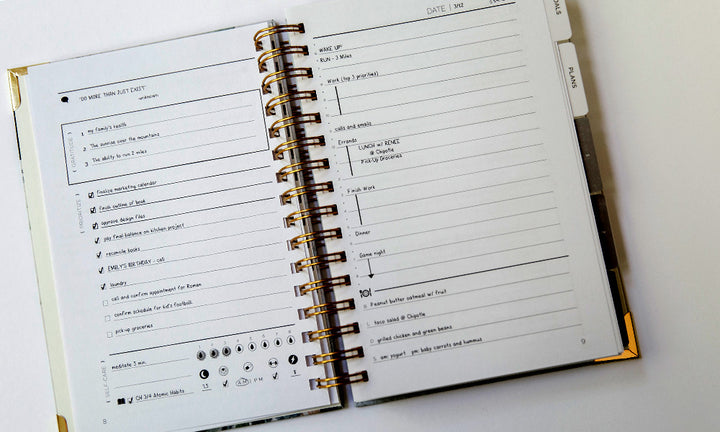 "DO MORE THAN JUST EXIST"
-unknown
GRATITUDE
1 my family's health
2 The sunrise over the mountains
3 The ability to run 2 miles
PRIORITIZE
finalize marketing calendar
finish outline of book
approve design files
pay final balance on kitchen project
reconcile books
EMILY'S BIRTHDAY - call
laundry
call and confirm appointment for Roman
confirm schedule for kid's football
pick-up groceries
SELF-CARE
meditate 5 min.
7.5
A.M. P.M.
8
CH 3/4 Atomic Habits
8
DATE | 3/12
WAKE UP!
RUN - 2 Miles
Work (top 3 priorities)
calls and emails
Errands
LUNCH w/ RENEE
@ Chipotle
Pick-Up Groceries
Finish Work
Dinner
Game night
B. Peanut butter oatmeal w/ fruit
L. taco salad @ Chipotle
D. grilled chicken and green beans
S. am: yogurt pm: baby carrots and hummus
9
GOALS
PLANS